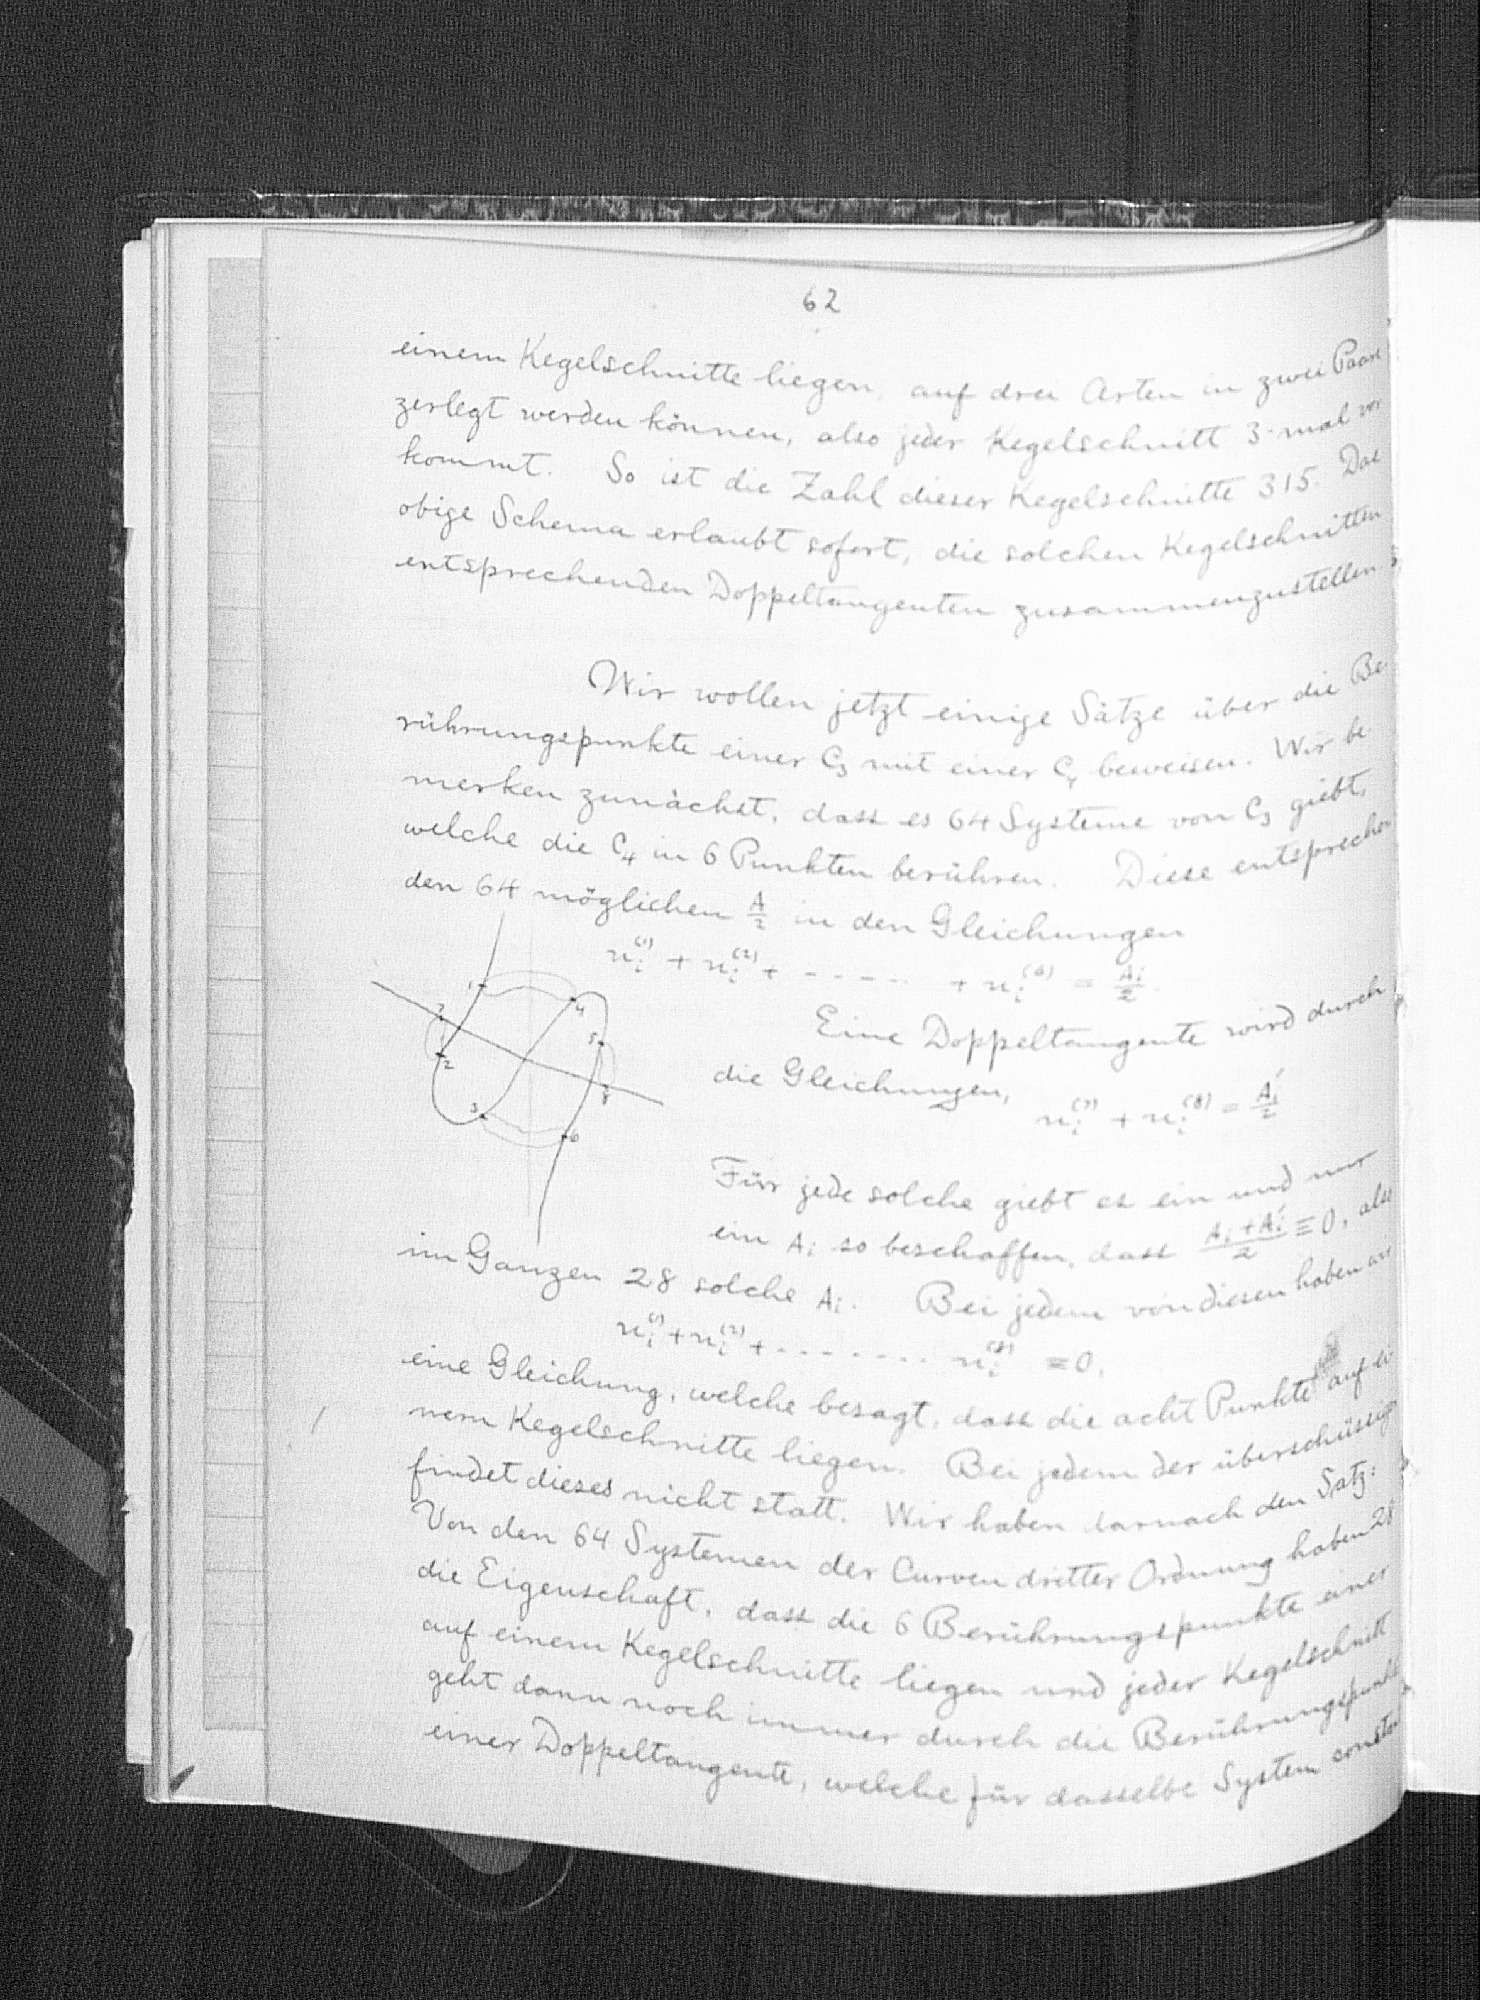 62
einem Kegelschnitte liegen, auf drei Arten in zwei Paare
zerlegt werden können, also jeder Kegelschnitt 3-mal vor
kommt. So ist die Zahl dieser Kegelschnitte 315. Das
obige Schema erlaubt sofort, die solchen Kegelschnitten
entsprechenden Doppeltangenten zusammenzustellen
Wir wollen jetzt einige Sätze über die Be-
rührungspunkte einer C₃ mit einer C₄ beweisen. Wir be-
merken zunächst, dass es 64 Systeme von C₃ giebt,
welche die C₄ in 6 Punkten berühren. Diese entsprechen
den 64 möglichen A/2 in den Gleichungen
uᵢ⁽¹⁾ + uᵢ⁽²⁾ + - - - - - + uᵢ⁽⁶⁾ = Aᵢ/2.
1 4 7 5 2 8 3 6
Eine Doppeltangente wird durch
die Gleichungen,
uᵢ⁽⁷⁾ + uᵢ⁽⁸⁾ = Aᵢ′/2
Für jede solche giebt es ein und nur
ein Aᵢ so beschaffen, dass (Aᵢ + Aᵢ′)/2 ≡ 0, also
im Ganzen 28 solche Aᵢ. Bei jedem von diesen haben wir
uᵢ⁽¹⁾ + uᵢ⁽²⁾ + - - - - - - - uᵢ⁽⁸⁾ ≡ 0,
eine Gleichung, welche besagt, dass die acht Punkte auf ei-
nem Kegelschnitte liegen. Bei jedem der überschüssig
findet dieses nicht statt. Wir haben darnach den Satz:
Von den 64 Systemen der Curven dritter Ordnung haben 28
die Eigenschaft, dass die 6 Berührungspunkte einer
auf einem Kegelschnitte liegen und jeder Kegelschnitt
geht dann noch immer durch die Berührungspunkte
einer Doppeltangente, welche für dasselbe System constant